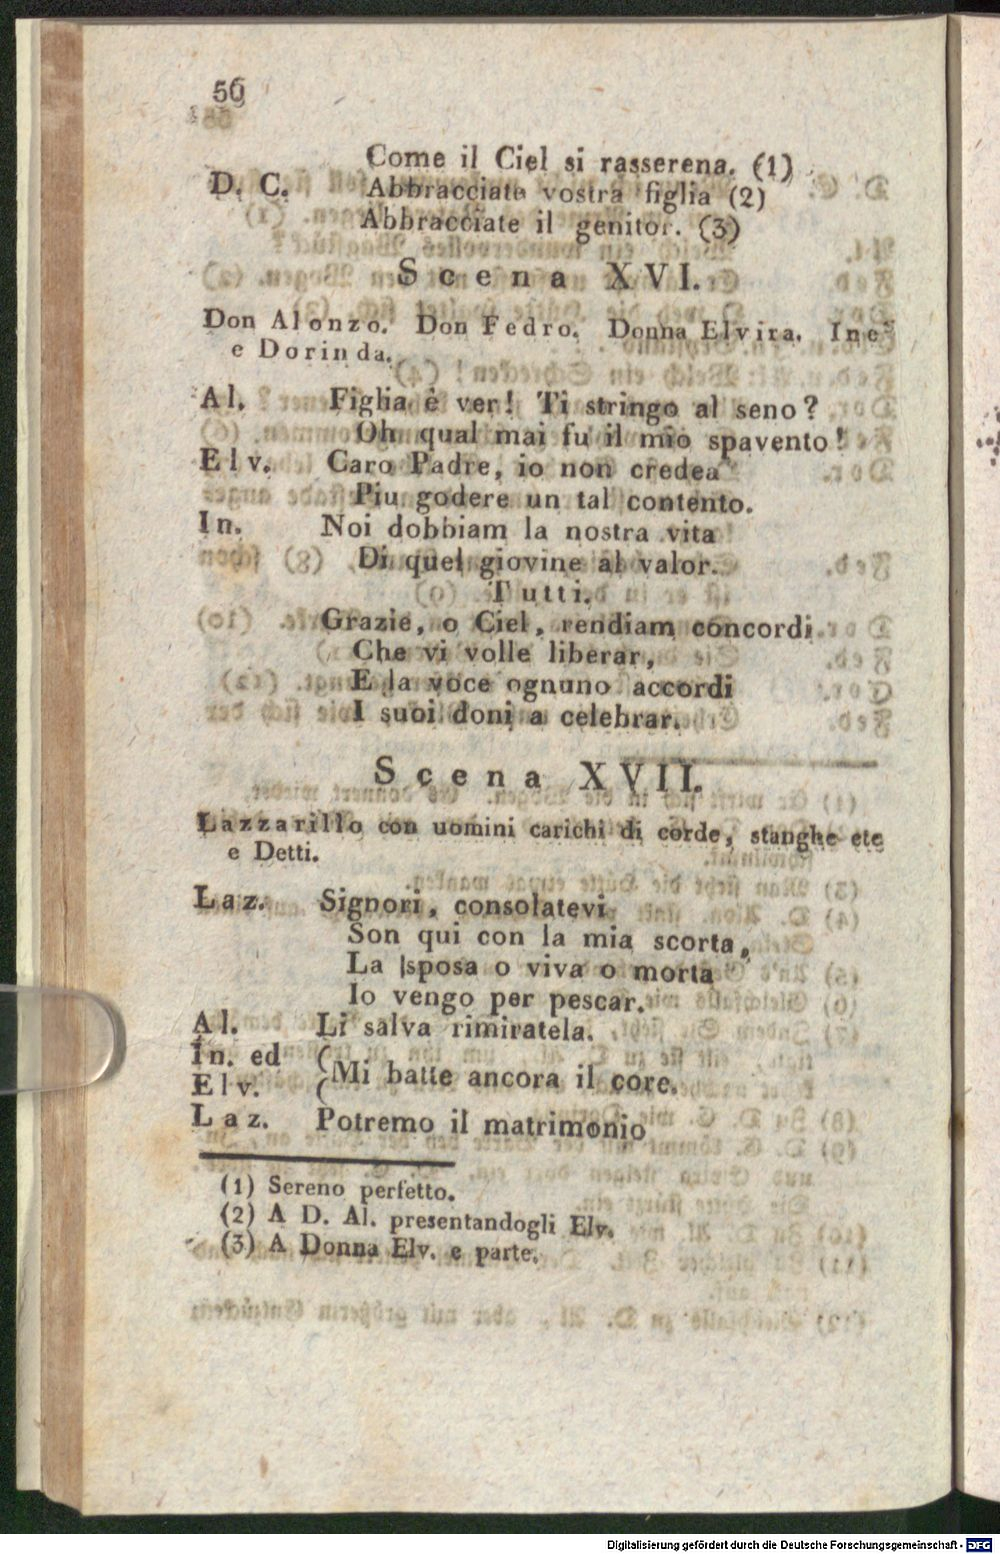 50
Come il Ciel si rasserena. (1)
D. C. Abbracciate vostra figlia (2)
Abbracciate il genitor. (3)
Scena XVI.
Don Alonzo. Don Fedro. Donna Elvira. Ine
e Dorinda.
Al. Figlia è ver! Ti stringo al seno?
Oh qual mai fu il mio spavento!
Elv. Caro Padre, io non credea
Piu godere un tal contento.
In. Noi dobbiam la nostra vita
Di quel giovine al valor.
Tutti.
Grazie, o Ciel, rendiam concordi
Che vi volle liberar,
E la voce ognuno accordi
I suoi doni a celebrar.
Scena XVII.
Lazzarillo con uomini carichi di corde, stanghe etc
e Detti.
Laz. Signori, consolatevi
Son qui con la mia scorta,
La sposa o viva o morta
Io vengo per pescar.
Al. Li salva rimiratela.
In. ed (
Elv. ( Mi batte ancora il core.
Laz. Potremo il matrimonio
(1) Sereno perfetto.
(2) A D. Al. presentandogli Elv.
(3) A Donna Elv. e parte.
Digitalisierung gefördert durch die Deutsche Forschungsgemeinschaft - DFG